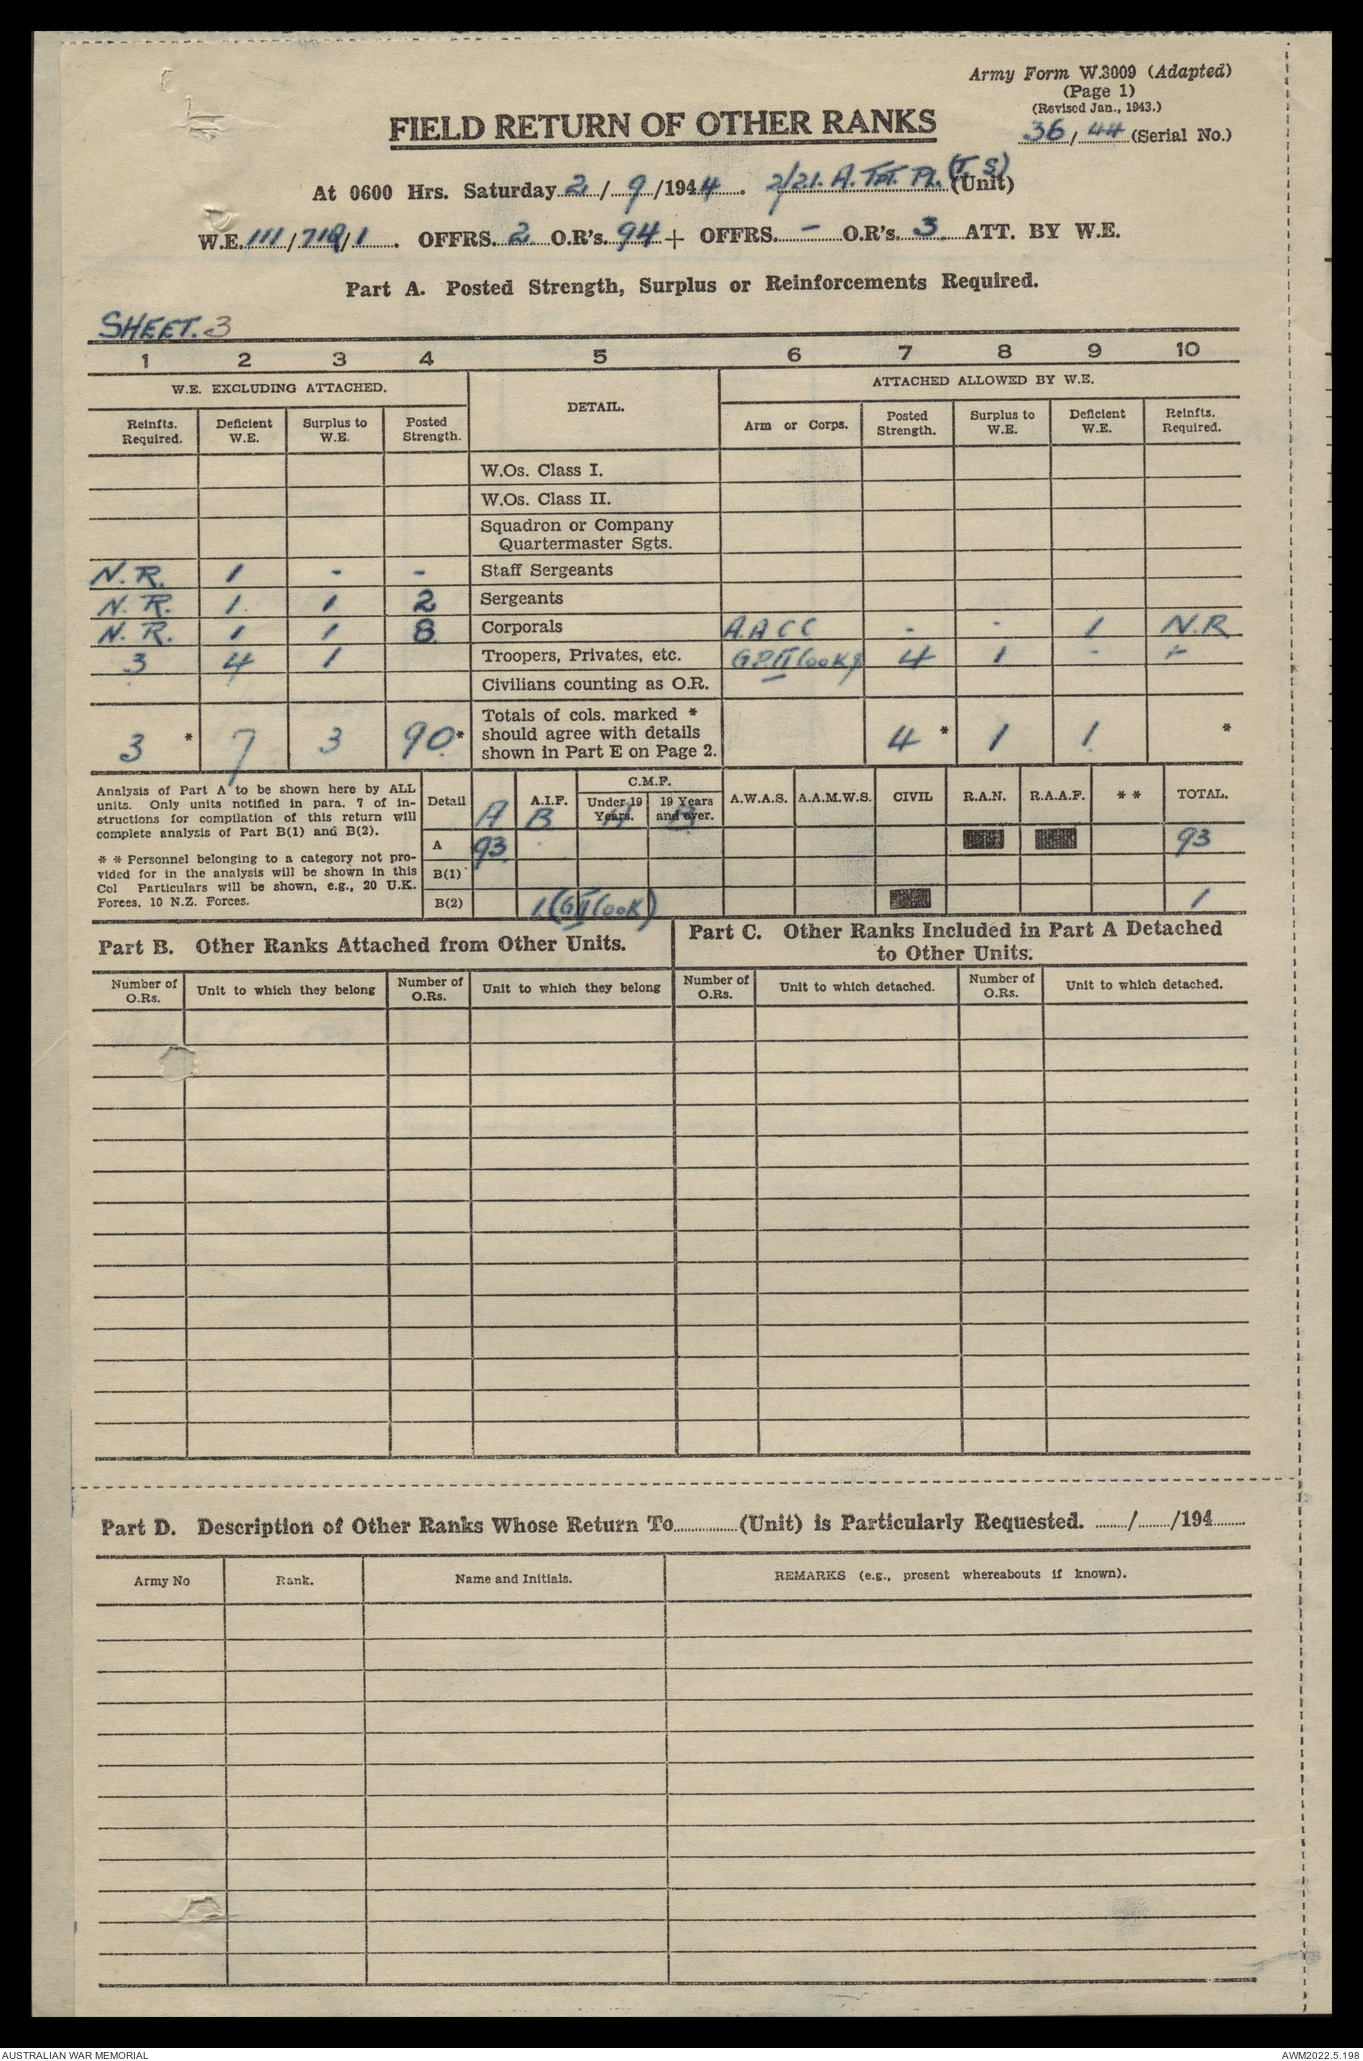 Army Form W.3009 (Adapted)
(Page 1)
(Revised Jan., 1943.)
FIELD RETURN OF OTHER RANKS
36/44 (Serial No.)
At 0600 Hrs. Saturday 2/9/1944. 2/21. A. Tpt. Pl. (T. S) (Unit)
W.E. 111/719/1. OFFRS. 2 O.R's. 94 + OFFRS. – O.R's. 3 ATT. BY W.E.
Part A. Posted Strength, Surplus or Reinforcements Required.
SHEET. 3
1 2 3 4 5 6 7 8 9 10
W.E. EXCLUDING ATTACHED. DETAIL. ATTACHED ALLOWED BY W.E.
Reinfts. Required. Deficient W.E. Surplus to W.E. Posted Strength. Arm or Corps. Posted Strength. Surplus to W.E. Deficient W.E. Reinfts. Required.
W.Os. Class I.
W.Os. Class II.
Squadron or Company
Quartermaster Sgts.
N.R. 1 - - Staff Sergeants
N.R. 1 1 2 Sergeants
N.R. 1 1 8 Corporals A.A.C.C - - 1 N.R
3 4 1 Troopers, Privates, etc. GP.II Cooks 4 1 -
Civilians counting as O.R.
3 * 7 3 90 * Totals of cols. marked * should agree with details shown in Part E on Page 2. 4 * 1 1 *
Analysis of Part A to be shown here by ALL
units. Only units notified in para. 7 of in-
structions for compilation of this return will
complete analysis of Part B(1) and B(2).
* * Personnel belonging to a category not pro-
vided for in the analysis will be shown in this
Col Particulars will be shown, e.g., 20 U.K.
Forces, 10 N.Z. Forces.
C.M.F.
Detail A.I.F. Under 19 Years. 19 Years and over. A.W.A.S. A.A.M.W.S. CIVIL R.A.N. R.A.A.F. * * TOTAL.
A B A B
A 93 93
B(1)
B(2) 1 (GII Cook) 1
Part B. Other Ranks Attached from Other Units.
Part C. Other Ranks Included in Part A Detached
to Other Units.
Number of O.Rs. Unit to which they belong Number of O.Rs. Unit to which they belong Number of O.Rs. Unit to which detached. Number of O.Rs. Unit to which detached.
Part D. Description of Other Ranks Whose Return To............(Unit) is Particularly Requested. ....../....../194......
Army No Rank. Name and Initials. REMARKS (e.g., present whereabouts if known).
AUSTRALIAN WAR MEMORIAL
AWM2022.5.198